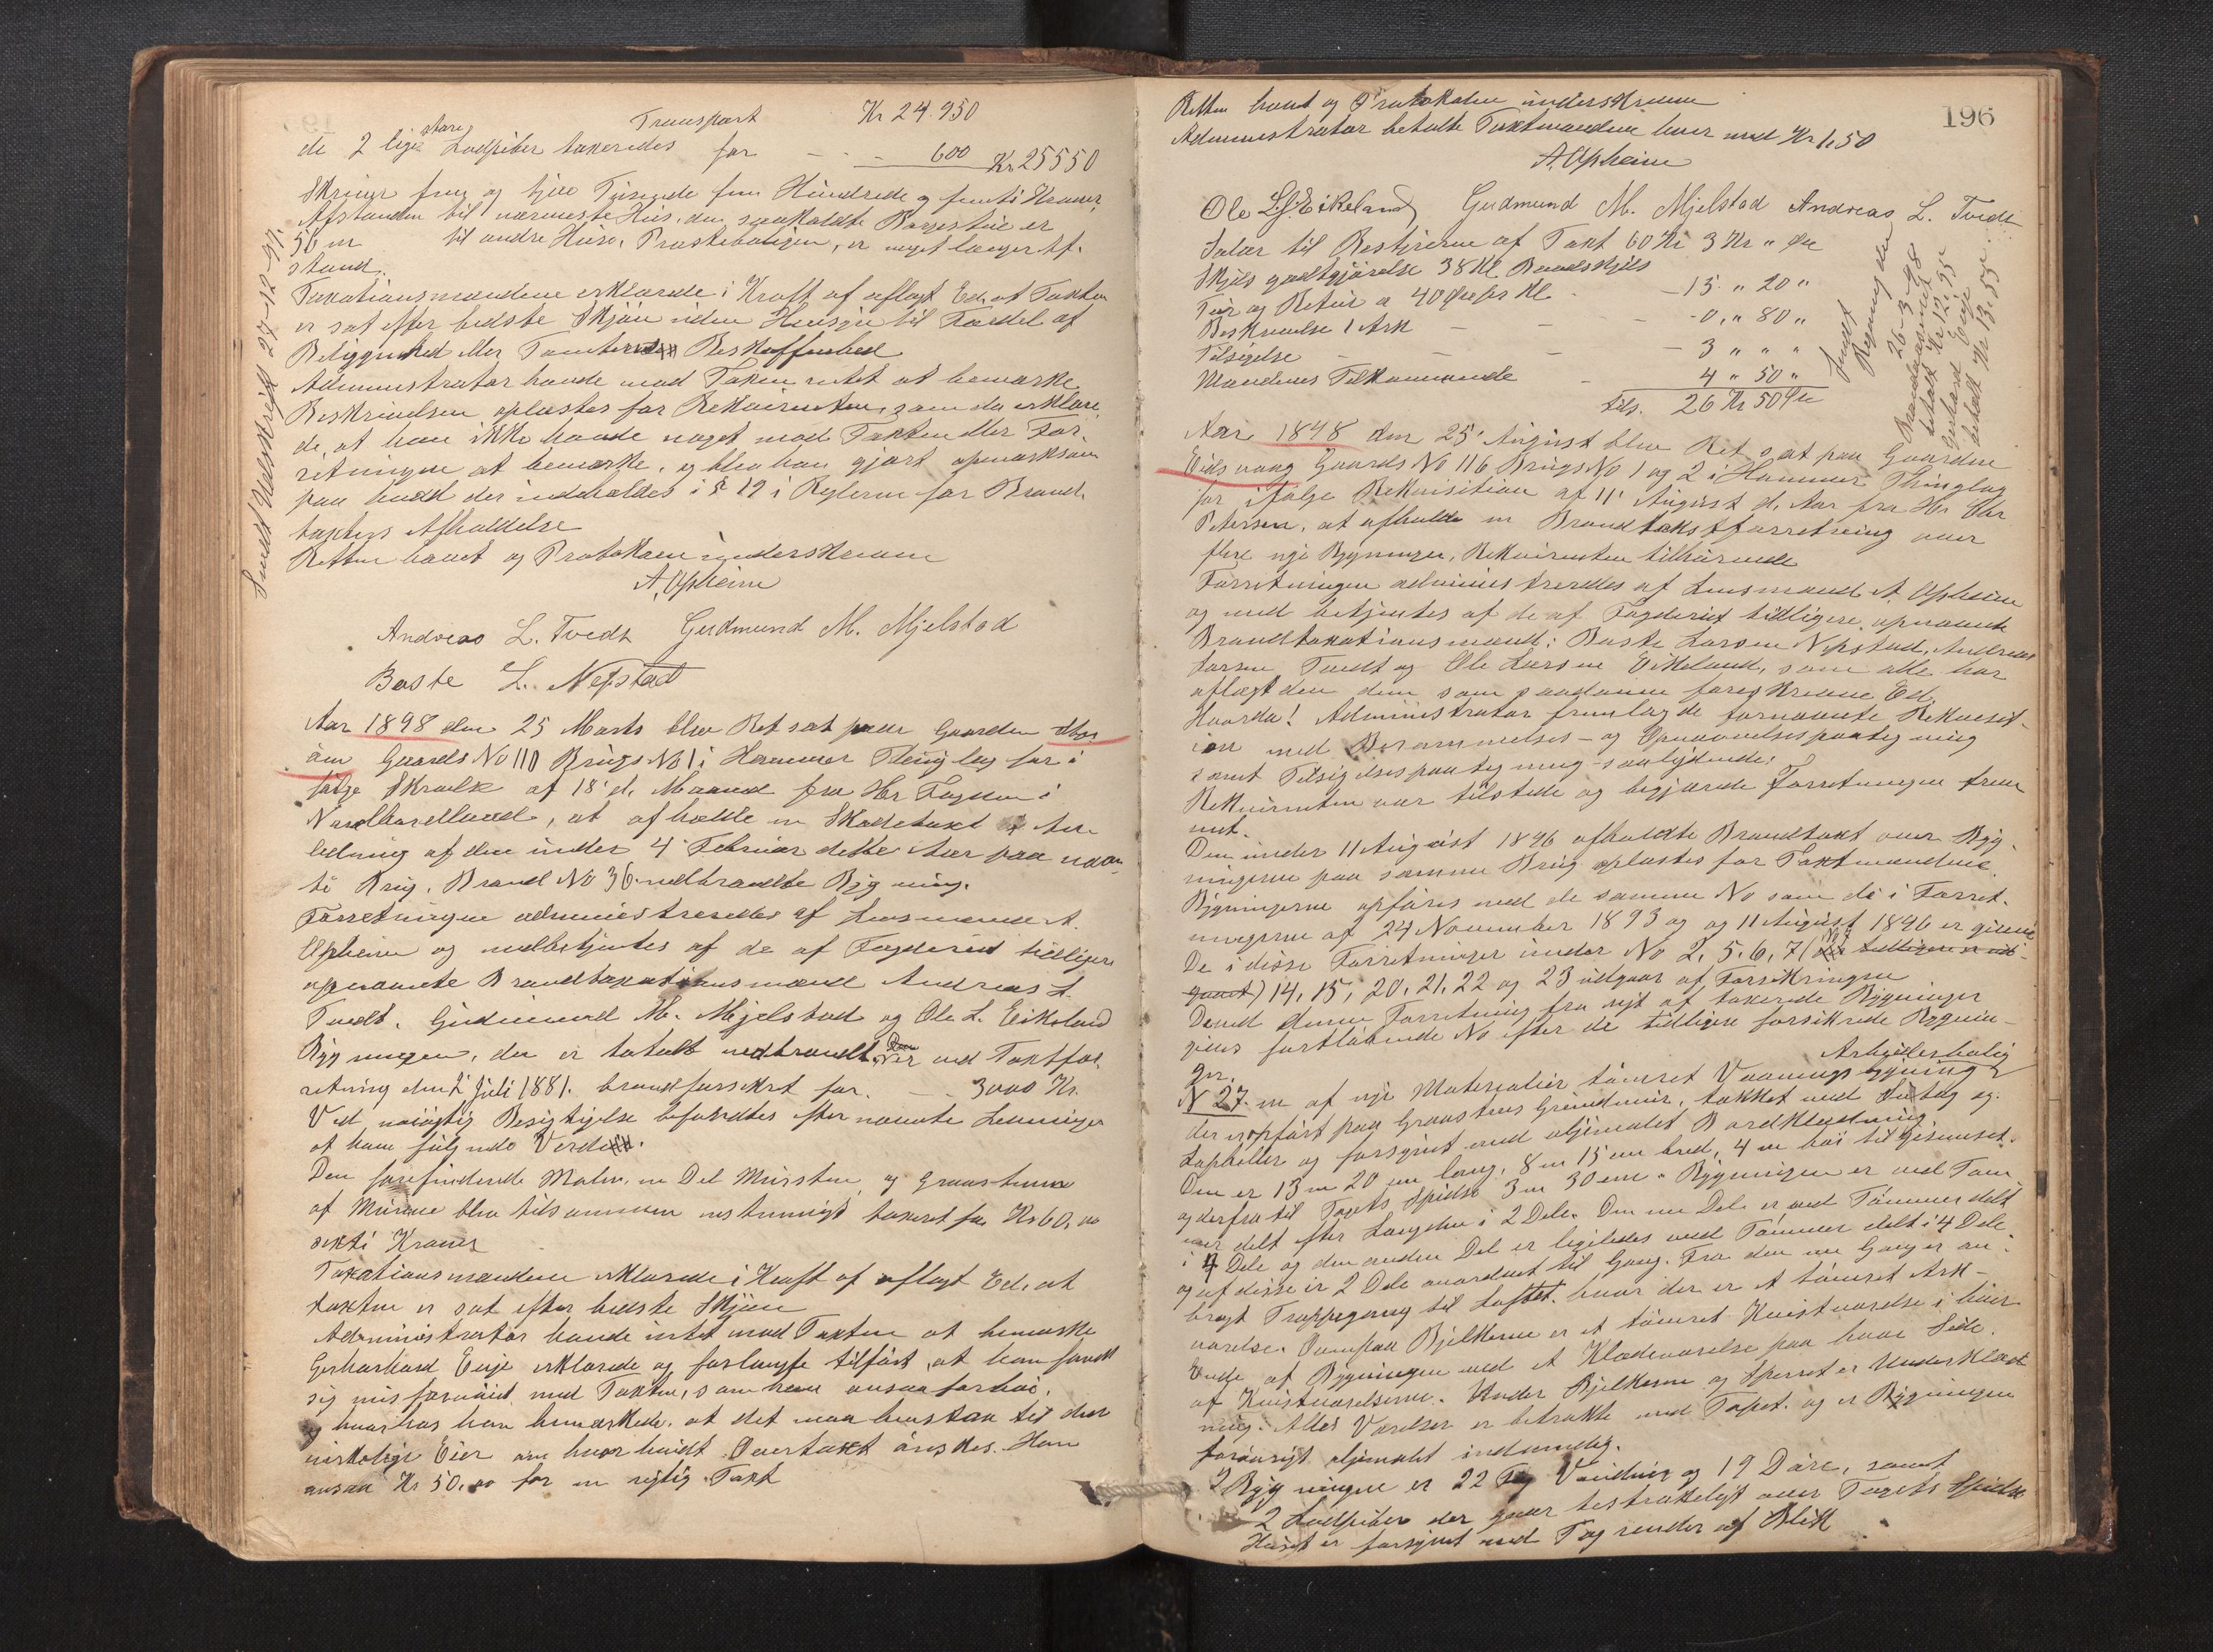 Transport Kr 24.950
de 2 lige store Lodpiber taxeredes for - - - 600 Kr 25550
Skriver fem og tjue Tusende fem Hundrede og femti Kroner
Afstanden til nærmeste Hus, den saakaldte Borgstue er
56 m til andre Huse, Præsteboligen, er noget længer Af-
stand.
Taxationsmændene erklærede i Kraft af aflagt Ed, at Taxten
er sat efter bedste Skjøn uden Hensyn til Fordel af
Beliggenhed eller Tomtens Beskaffenhed
Administrator havde mod Taxten intet at bemærke
Beskrivelsen oplæstes for Rekvirenten, som da erklære-
de, at han ikke havde noget mod Taxten eller For-
retningen at bemærke, og blev han gjort opmærksom
paa hvad der indeholdes i § 19 i Reglerne for Brand-
taxters Afholdelse
Retten hævet og Protokolen underskreven
A. Opheim
Andreas L. Tvedt Gudmund M. Mjelstad
Baste L. Nepstad
Sendt Udskrift 27-12-97.
Aar 1898 den 25 Marts blev Ret sat paa Gaarden
Gaards No 110 Brugs No 1 i Hammer Thinglag for i
følge Skrivelse af 18 d. Maaned fra Hr Fogden i
Nordhordland, at afholde en Skadetaxt i An-
ledning af den under 4 Februar dette Aar paa nævn-
te Brug, Brand No 36 nedbrændte Bygning.
Forretningen administreredes af Lensmand A.
Opheim og medbetjentes af de af Fogderiet tidligere
opnævnte Brandtaxationsmænd Andreas L.
Tvedt, Gudmund M. Mjelstad og Ole L. Eikeland
Bygningen, der er totalt nedbrændt. Den er ved Taxtfor-
retning den 2 Juli 1881. brandforsikret for - - 3000 Kr.
Ved nøiagtig Besigtigelse befandtes efter nævnte Levninger
at have følgende Verdi.
Den forefindende Malm, en Del Mursten og Graastenen
af Murene blev tilsammen enstemmigt taxeret for Kr 60,00
sexti Kroner
Taxationsmændene erklærede i Kraft af aflagt Ed, at
taxten er sat efter bedste Skjøn
Administrator havde intet mod Taxten at bemærke
Gerhard Euje erklærede og forlangte tilført, at han fandt
sig misfornøiet med Taxten, som han ansaa for høi.
og hvorhos han bemærkede, at det maa henstaa til den
virkelige Eier om hvorvidt Overtaxt ønskes. Han
ansaa Kr 50,00 for en rigtig Taxt
196
Retten hævet og Protokolen underskreven
Administrator betalte Taxtmændene hver med Kr 1,50
A. Opheim
Ole L. Eikeland Gudmund M. Mjelstad Andreas L. Tvedt
Salær til Bestyreren af Taxt 60 Kr 3 Kr " Øre
Skyds godtgjørelse 38 Kl. Baadskyds
Tur og Retur a 40 Øre pr Kl. - - 15 " 20 "
Beskrivelse 1 Ark - - - 0 " 80 "
Tilsigelse - - - - 3 " " "
Mændenes Tilkommende - 4 " 50 "
tils. 26 Kr 50 Øre
Sendt
Regning den
26-3-98
Brandvæsenet
betalt Kr 12,95
Gerhard Euje
betalt Kr 13,55
Aar 1898 den 25' August blev Ret sat paa Gaarden
Eidsvaag Gaards No 116 Brugs No 1 og 2 i Hammer Thinglag
for ifølge Rekvisition af 11' August d. Aar fra Hr
Petersen, at afholde en Brandtaxtforretning over
flere nye Bygninger, Rekvirenten tilhørende
Forretningen administreredes af Lensmand A. Opheim
og med betjentes af de af Fogderiet tidligere opnævnte
Brandtaxationsmænd: Baste Larsen Nepstad, Andreas
Larsen Tvedt og Ole Larsen Eikeland, som alle har
aflagt den dem som saadanne foreskrevne Ed.
Hvorda! Administrator fremlagde fornævnte Rekvisit-
ion med Berammelses- og Opnævnelsespaategning
samt Tilsigelsespaategning saalydende:
Rekvirenten var tilstede og begjærede Forretningen frem-
met.
Den under 11 August 1896 afholdte Brandtaxt over Byg-
ningerne paa samme Brug oplæstes for Taxtmændene.
Bygningerne opføres med de samme No som de i Forret-
ningerne af 24 November 1893 og og 11 August 1896 er givne
De i disse Forretninger under No 2, 5, 6, 7 (
) 14, 15, 20, 21, 22 og 23 udgaar af Forsikringen
Ved denne Forretning fra nyt af taxerede Bygninger
gives fortløbende No efter de tidligere forsikrede Bygnin-
ger.
Arbeiderbolig
N 27. en af nye Materialier tømret Vaaningsbygning
der er opført paa Graastens Grundmur, tækket med Sutag og
Laphelle og forsynet med oljemalet Bordklædning
Den er 13 m 20 cm lang, 8 m 15 cm bred, 4 m høi til Gesimset.
og derfra til Tagets Spidse 3 m 30 cm. Bygningen er ved Tøm-
mer delt efter Længden i 2 Dele. Den ene Del er ved Tømmer delt
i 4 Dele og den anden Del er ligeledes ved Tømmer delt i 4 Dele
og af disse er 2 Dele anordnet til Gang. Fra den ene Gang er an-
bragt Trappegang til Loftet. hvor der er et tømret Ark-
værelse. Ovenpaa Bjelkerne er et tømret Kvistværelse i hver
Ende af Bygningen med et Klædeværelse paa hver Side
af Kvistværelserne. Under Bjelkerne og Sperret er Underklæd-
ning. Alle Værelser er betrukke med Tapet. og er Bygningen
forøvrigt oljemalet indvendig.
I Bygningen er 22 Fag Vinduer og 19 Døre, samt
2 Lodpiber der gaar bestrækkeligt over Tagets Spidse
Huset er forsynet med Tagrender af Blik